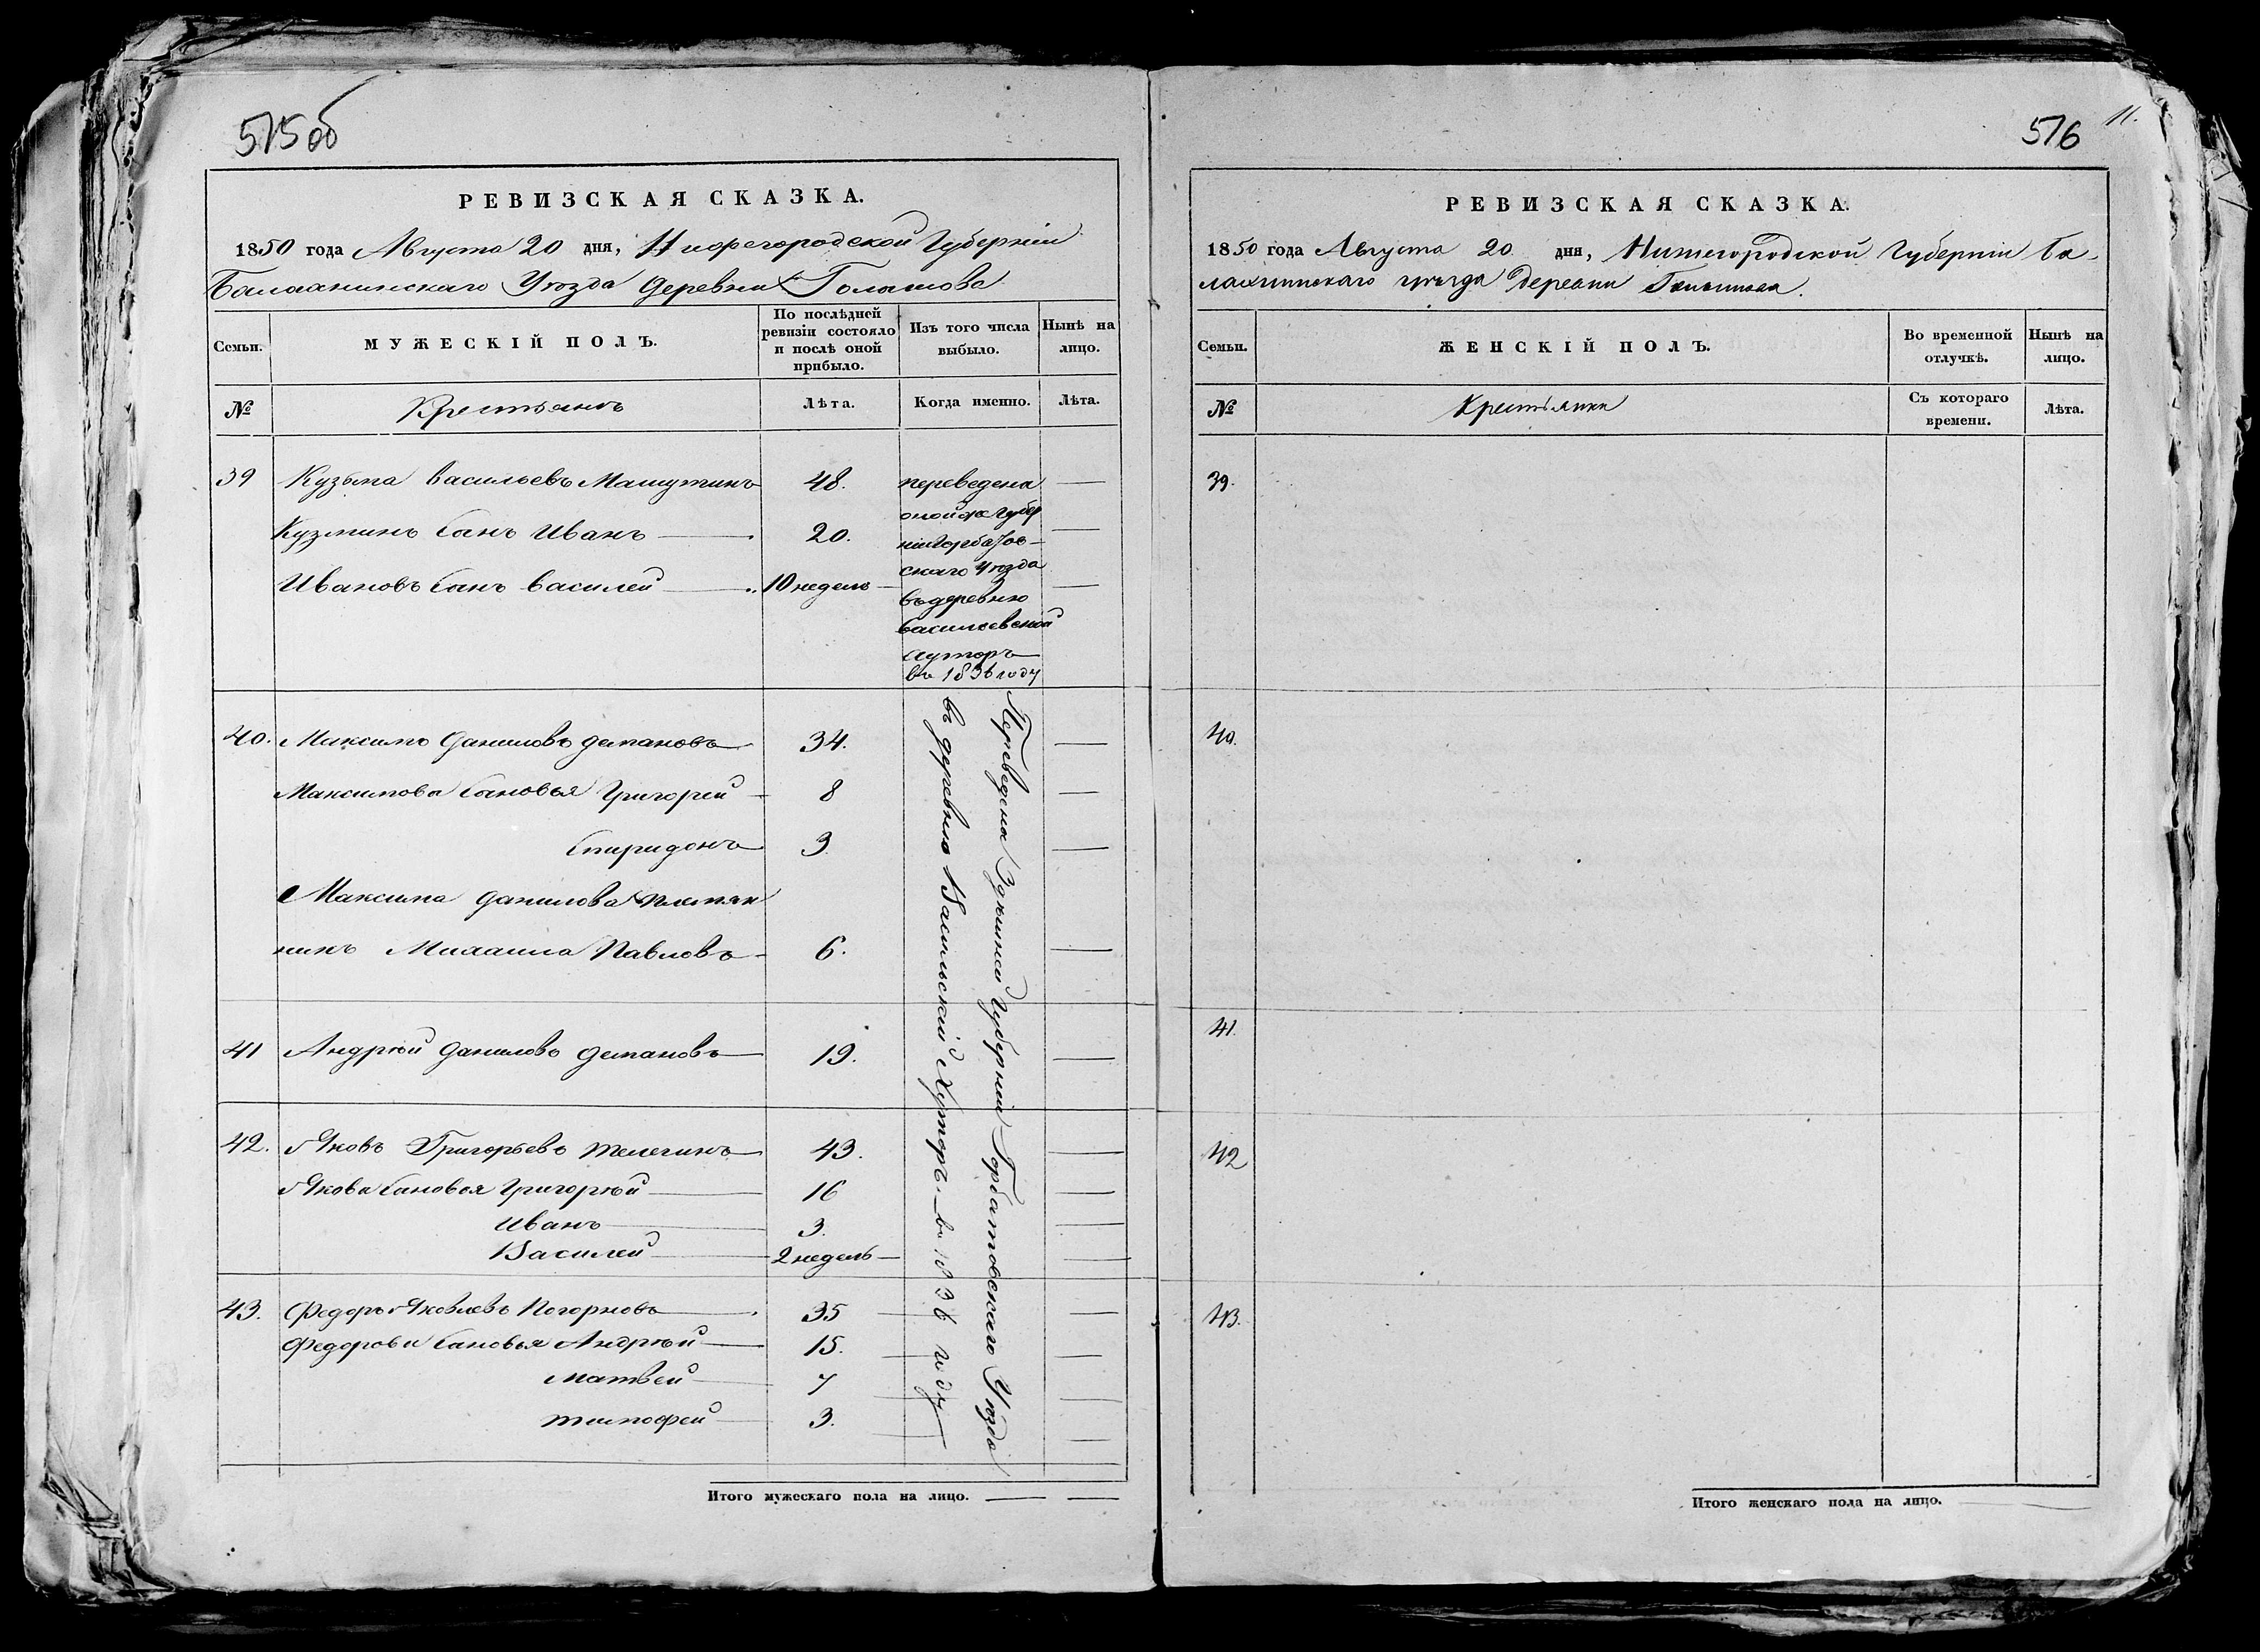 515об
РЕВИЗСКАЯ СКАЗКА.
1850 года Августа 20 дня, Нижегородской Губерніи
Балахнинскаго Уѣзда деревни
Семьи.
МУЖЕСКІЙ ПОЛЪ.
По послѣдней ревизіи состояло и послѣ оной прибыло.
Изъ того числа выбыло.
Нынѣ на лицо.
№
Крестьянъ
Лѣта.
Когда именно.
Лѣта.
39 Кузьма Васильевъ Машутинъ 48. —
Кузминъ Сынъ Иванъ — 20. —
Ивановъ Сынъ Василей — 10 недель —
переведена
оной же Губер
ніи Горбатов-
скаго Уѣзда
въ деревню
Васильевской
хуторъ
въ 1836 году
40. Максимъ Даниловъ Демановъ 34. —
Максимова Сановья Григорей — 8 —
Спиридонъ 3 —
Максима Данилова племян
никъ Михаила Павловъ — 6. —
41 Андрѣй Даниловъ Демановъ — 19. —
42. Яковъ Григорьевъ Телегинъ 43. —
Якова Сановья Григорѣй — 16 —
Иванъ — 3. —
Василей — 2 недель —
43. Федоръ Яковлевъ — 35 —
Федорова Сановья Андрѣй — 15. —
Матвей — 7 —
Тимофей — 3. —
Переведена Губерніи Горбатовскаго Уѣзда
въ деревню Васильскій Хуторъ. — въ 1836 году
Итого мужескаго пола на лицо. — —
576
11.
РЕВИЗСКАЯ СКАЗКА.
1850 года Августа 20 дня, Нижегородской Губерніи Ба-
лахнинскаго уѣзда деревни
Семьи.
ЖЕНСКІЙ ПОЛЪ.
Во временной отлучкѣ.
Нынѣ на лицо.
№
Крестьянки
Съ котораго времени.
Лѣта.
39.
40.
41.
42
43.
Итого женскаго пола на лицо. —